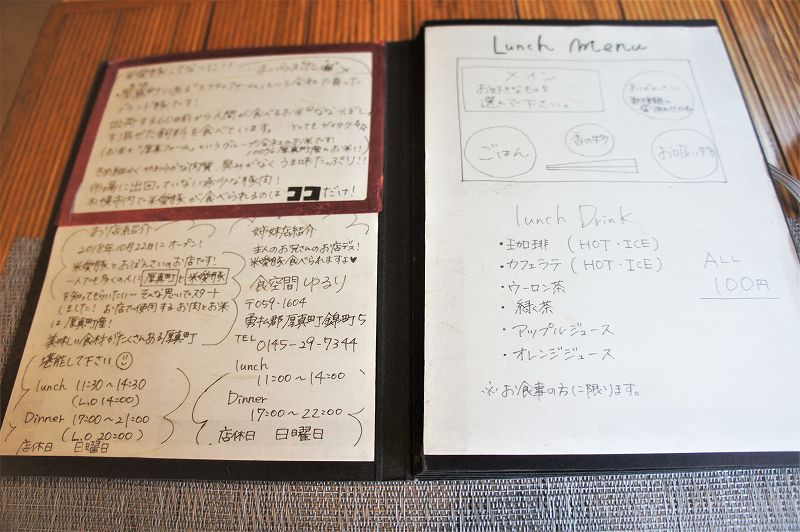 米愛豚ってなーに!!
まいらぶたん
厚真町に在る"エフティファーム"という会社で育った
ブランド豚です!
出荷する60日前から人間が食べるお米"ななつぼし"
を混ぜた飼料を食べています。 とってもゼイタク
(お米も「厚真ファーム」というグループ会社のお米です!
100%厚真町産のお米に)
きめ細かくやわらかな肉質 臭みがなくうま味たっぷり!!
市場に出回っていない希少な豚肉!
札幌市内で米愛豚が食べられるのはココだけ!
お店紹介
2018年10月22日にオープン!
米愛豚とおばんざいのお店です!
一人でも多くの人に厚真町と米愛豚
を知ってもらいたい…そんな思いでスタート
しました! お店で使用するお肉とお米
は厚真町産!
美味しい食材がたくさんある厚真町
堪能して下さい
lunch 11:30〜14:30
(L.O 14:00)
Dinner 17:00〜21:00
(L.O 20:00)
店休日 日曜日
姉妹店紹介
主人のお兄さんのお店デス!
米愛豚食べられますよ♥
食空間ゆるり
〒059-1604
勇払郡厚真町錦町5
TEL 0145-29-7344
lunch
11:00〜14:00
Dinner
17:00〜22:00
店休日 日曜日
Lunch menu
メイン
お好きなものを
選んで下さい。
おばんざい
数種類の
盛り合わせです。
ごはん
香の物
お吸い物
lunch Drink
・珈琲 (HOT・ICE)
・カフェラテ (HOT・ICE)
・ウーロン茶
・緑茶
・アップルジュース
・オレンジジュース
ALL
100円
※お食事の方に限ります。